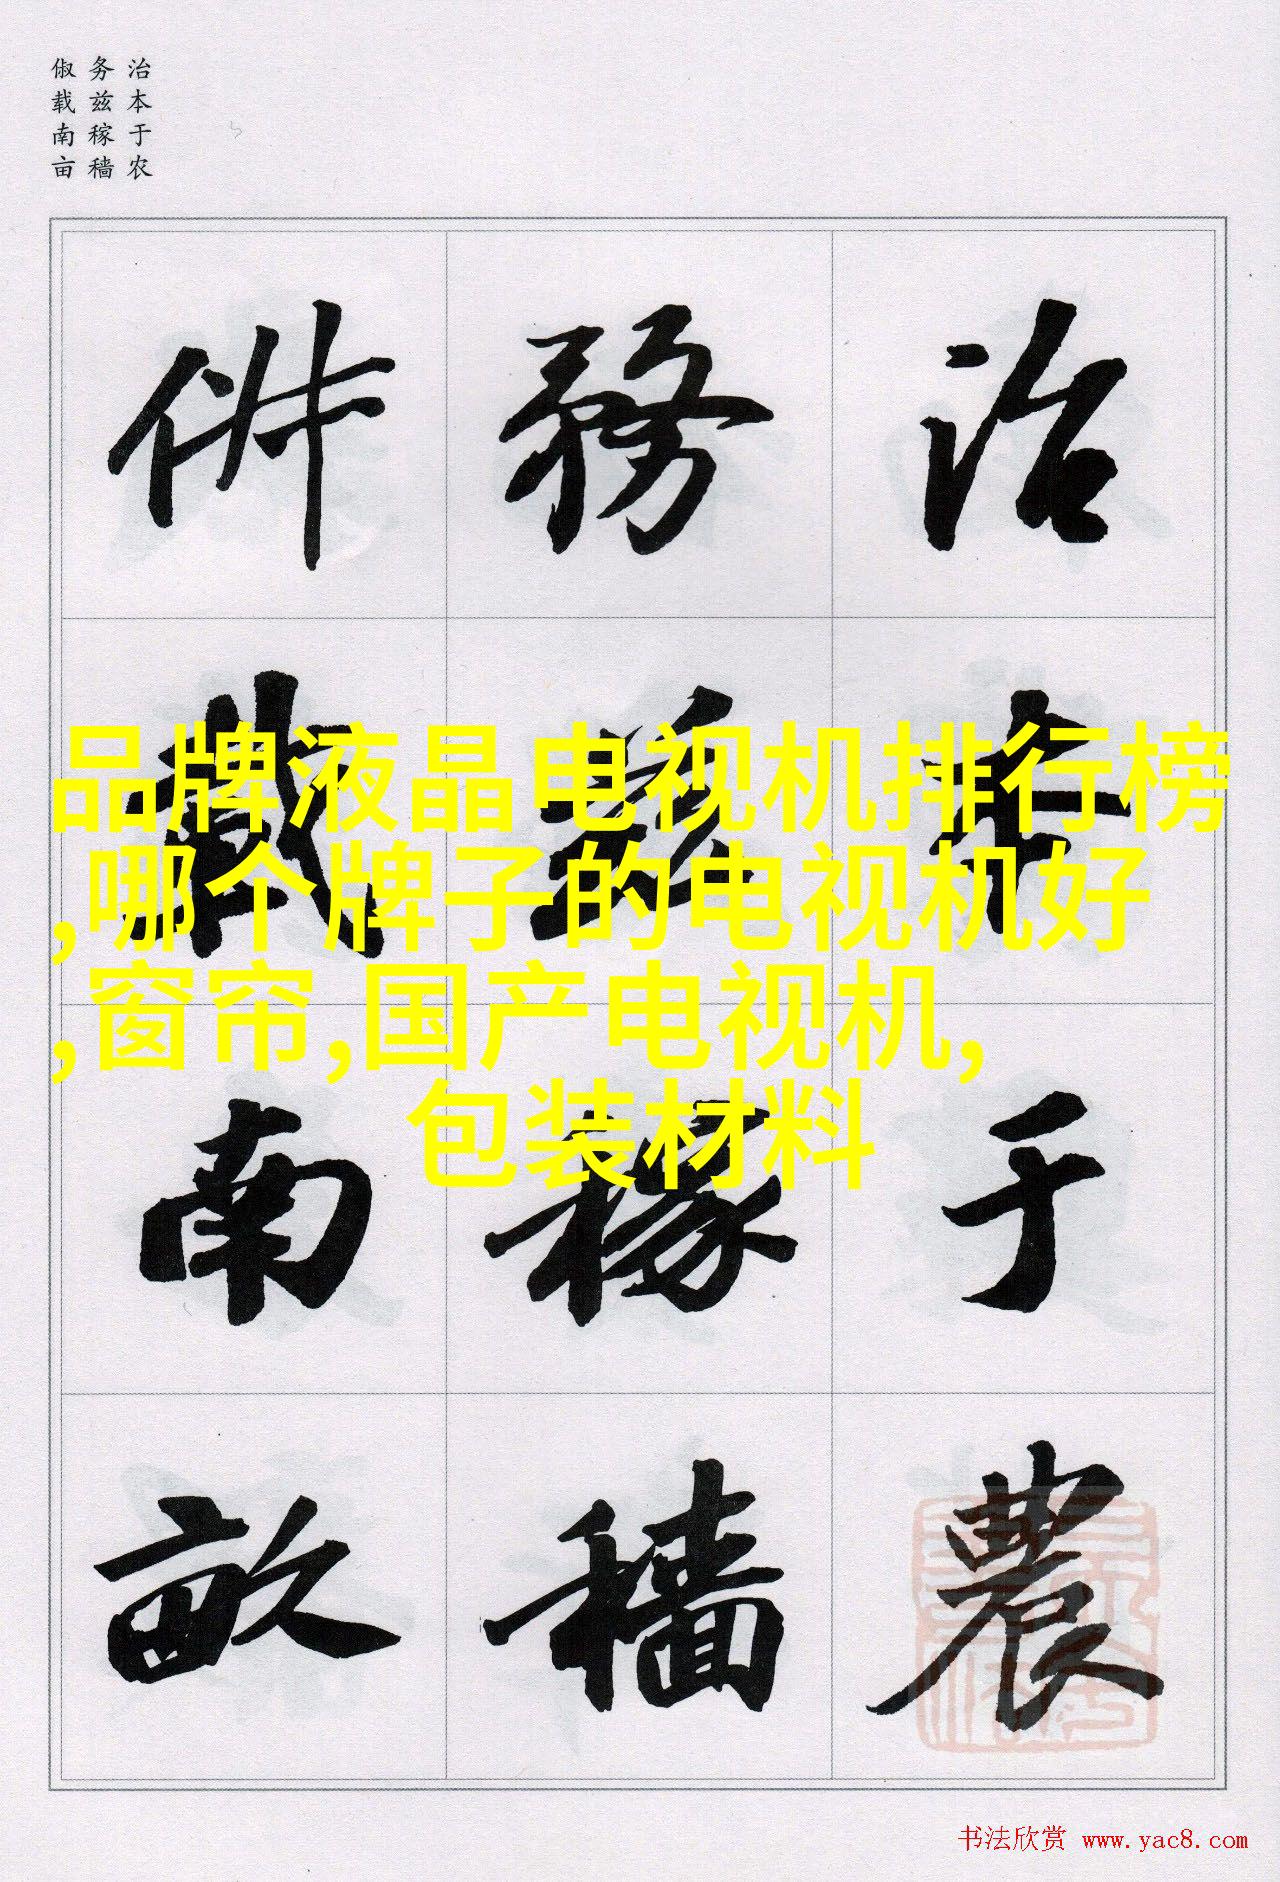 治本于农
务兹稼穑
俶载南亩
治本于農
務兹稼穡
俶載南畝
品牌液晶电视机排行榜
,哪个牌子的电视机好
,窗帘,国产电视机,
包装材料
书法欣赏 www.yac8.com